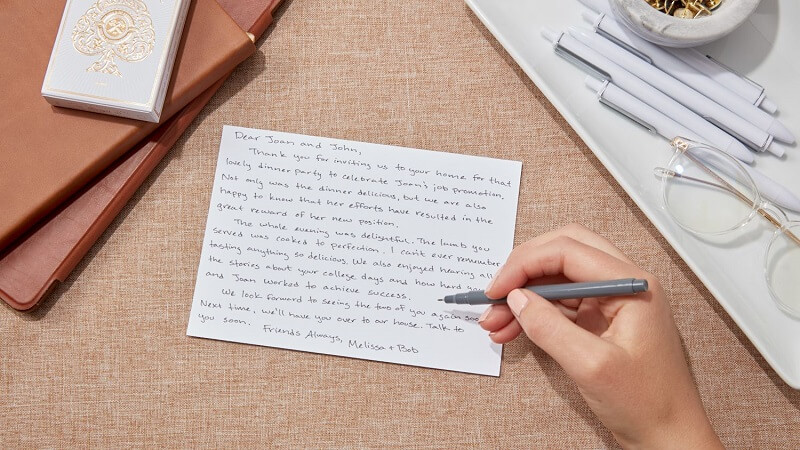 Dear Joan and John,
Thank you for inviting us to your home for that
lovely dinner party to celebrate Joan's job promotion.
Not only was the dinner delicious, but we are also
happy to know that her efforts have resulted in the
great reward of her new position.
The whole evening was delightful. The lamb you
served was cooked to perfection. I can't ever remember
tasting anything so delicious. We also enjoyed hearing all
the stories about your college days and how hard you
and Joan worked to achieve success.
We look forward to seeing the two of you again soon.
Next time, we'll have you over to our house. Talk to
you soon.
Friends Always, Melissa + Bob